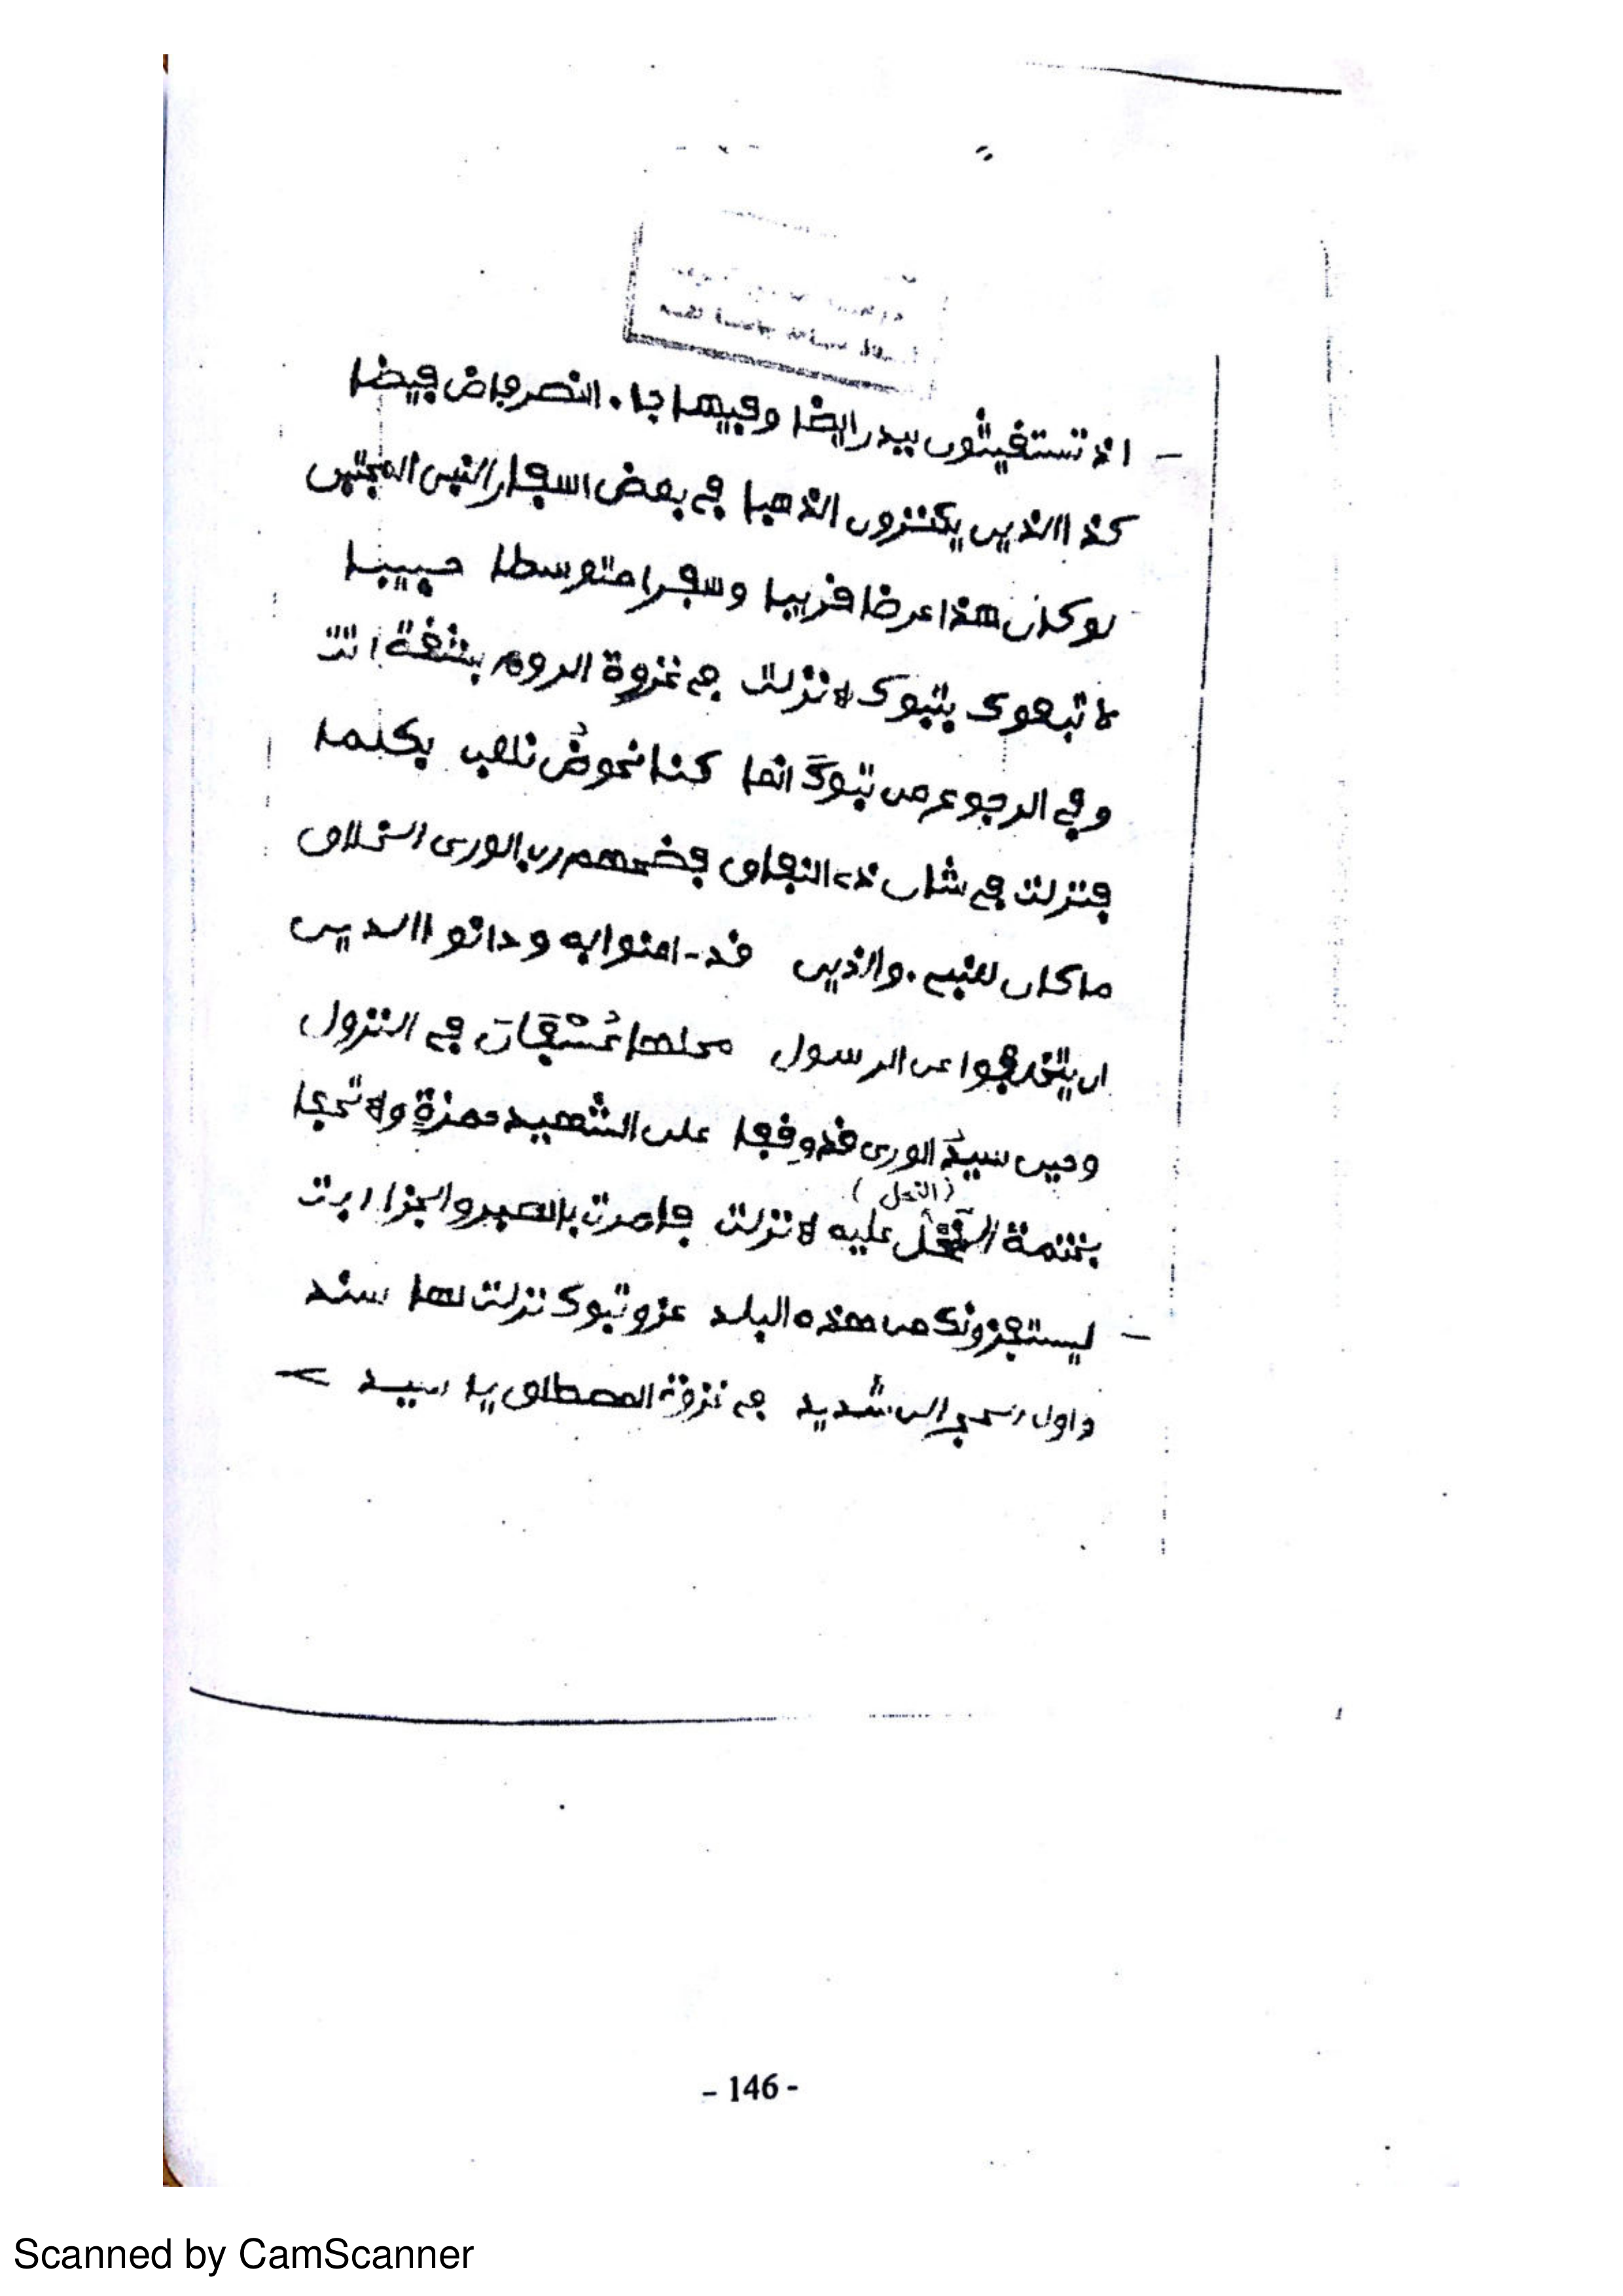 - اذ تستغيثون ببدر ايضا وفيها جا . النصر فاض فيضا
كذا الذين يكنزون الذهبا في بعض اسفار النبي المجتبى
لو كان هذا عرضا قريبا وسفرا متوسطا حبيبا
لا تبعوك بتبوك لا نزلت في غزوة الروم بشقة اتت
وفي الرجوع من تبوك انما كنا نخوض نلعب بكلما
فنزلت في شان ذي النفاق فضحهم رب الورى الخلاق
ما كان للنبي . والذين قد - امنوا به ودانوا الدين
ان يتخلفوا عن الرسول محلها في النزول
وحين سيد الورى قد وقفا على الشهيد حمزة ولا تحجا
(النحل)
بختمة النحل عليه لا نزلت فامرت بالصبر والجزا ابت
- ليستفزونك من هذه البلد غزو تبوك نزلت لها سند
واول الحج الى شديد في غزوة المصطلق يا سيد
- 146 -
Scanned by CamScanner